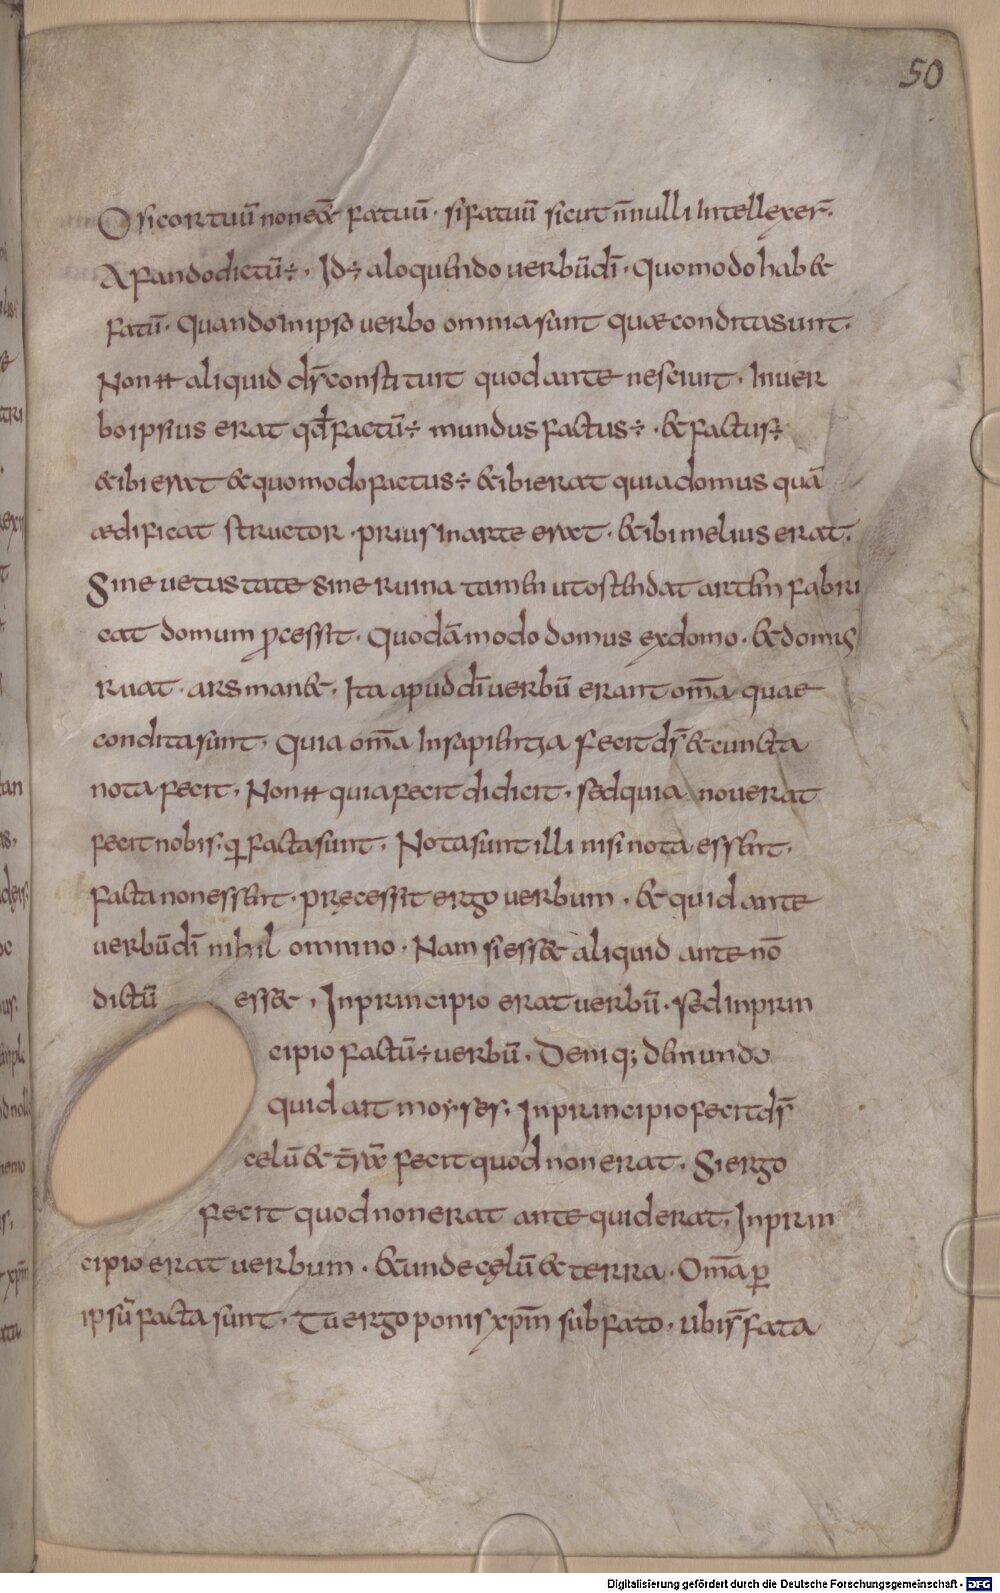 50
O si cor tuū non eēt fatuū · si fatuū sicut n̄nulli intellexer̄·
A fando dictū ÷ · Id ÷ a loquendo verbū dī · Quomodo habet
fatū · Quando in ipso verbo omnia sunt quae condita sunt·
Non H aliquid ds̄ constituit quod ante nesciuit · In uer
bo ipsius erat qd̄ factū ÷ mundus factus ÷ · et factus ÷
et ibi erat et quomodo factus ÷ et ibi erat quia domus quā
aedificat structor · prius in arte erat · et ibi melius erat·
Sine uetustate sine ruina tamen ut ostendat artem fabri
cat domum p̄cessit · Quodāmodo domus ex domo · et domus
ruat · ars manet · Ita apud dī uerbū erant om̄a quae
condita sunt · Quia om̄a In sapientia fecit ds̄ et cuncta
nota fecit · Non H quia fecit didicit · sed quia nouerat
fecit nobis · q; facta sunt · Nota sunt illi nisi nota essent·
facta non essent · pręcessit ergo uerbum · et quid ante
uerbū dī nihil omnino · Nam si esset aliquid ante nō
dictū esset · In principio erat uerbū · sed in prin
cipio factū ÷ uerbū · Deniq; de mundo
quid ait moyses · In principio fecit ds̄
celū et t̄rā fecit quod non erat · Si ergo
fecit quod non erat ante quid erat · In prin
cipio erat uerbum · et unde cęlū et terra · Om̄a p
ipsū facta sunt · Tu ergo ponis xpm̄ sub fato · ubi s̄ fata
Digitalisierung gefördert durch die Deutsche Forschungsgemeinschaft - DFG